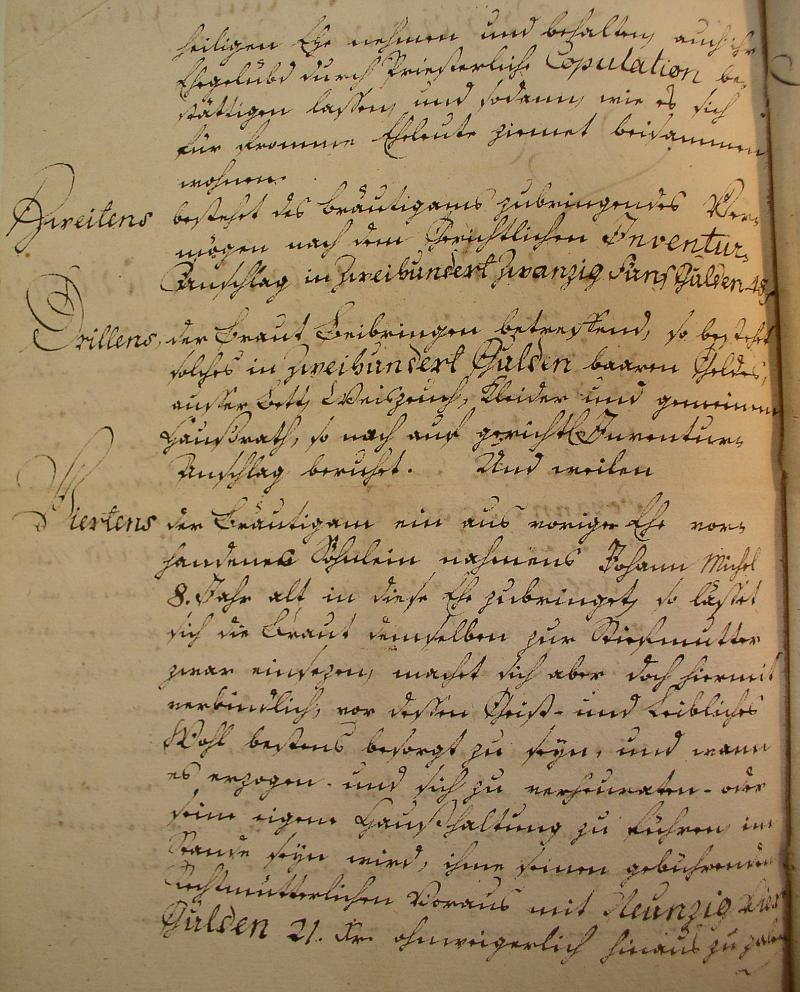 heiligen Ehe nehmen und behalten, auch ihr
Ehegelübd durch Priesterliche Copulation be-
stättigen lassen, und sodann, wie es sich
für fromme Eheleute ziemet beisammen
wohnen.
Zweitens bestehet des Bräutigams zubringendes Ver-
mögen nach dem Gerichtlichen Inventur-
Anschlag in Zweihundert Zwanzig Fünf Gulden 48
Drittens, der Braut Beibringen betreffend, so bestehet
solches in Zweihundert Gulden baaren Geldes,
ausser Bett, Weiszeuch, Kleider und gemeinem
Haußrath, so nach auf gerichtl. Inventur-
Anschlag beruhet. Und weilen
Viertens der Bräutigam ein aus voriger Ehe vor-
handenes Söhnlein nahmens Johann Michel
8. Jahr alt in diese Ehe zubringet, so lässet
sich die Braut demselben zur Stiefmutter
zwar einsezen, machet sich aber doch hiermit
verbindlich, vor dessen Geist- und Leibliches
Wohl bestens besorgt zu seyn, und wann
es erzogen- und sich zu verheuraten- oder
seine eigene Haußhaltung zu führen im
Stande seyn wird, ihme seinen gebührenden
Rechtmütterlichen Voraus mit Neunzig Vier
Gulden 21. Kr. ohnweigerlich hinaus zu